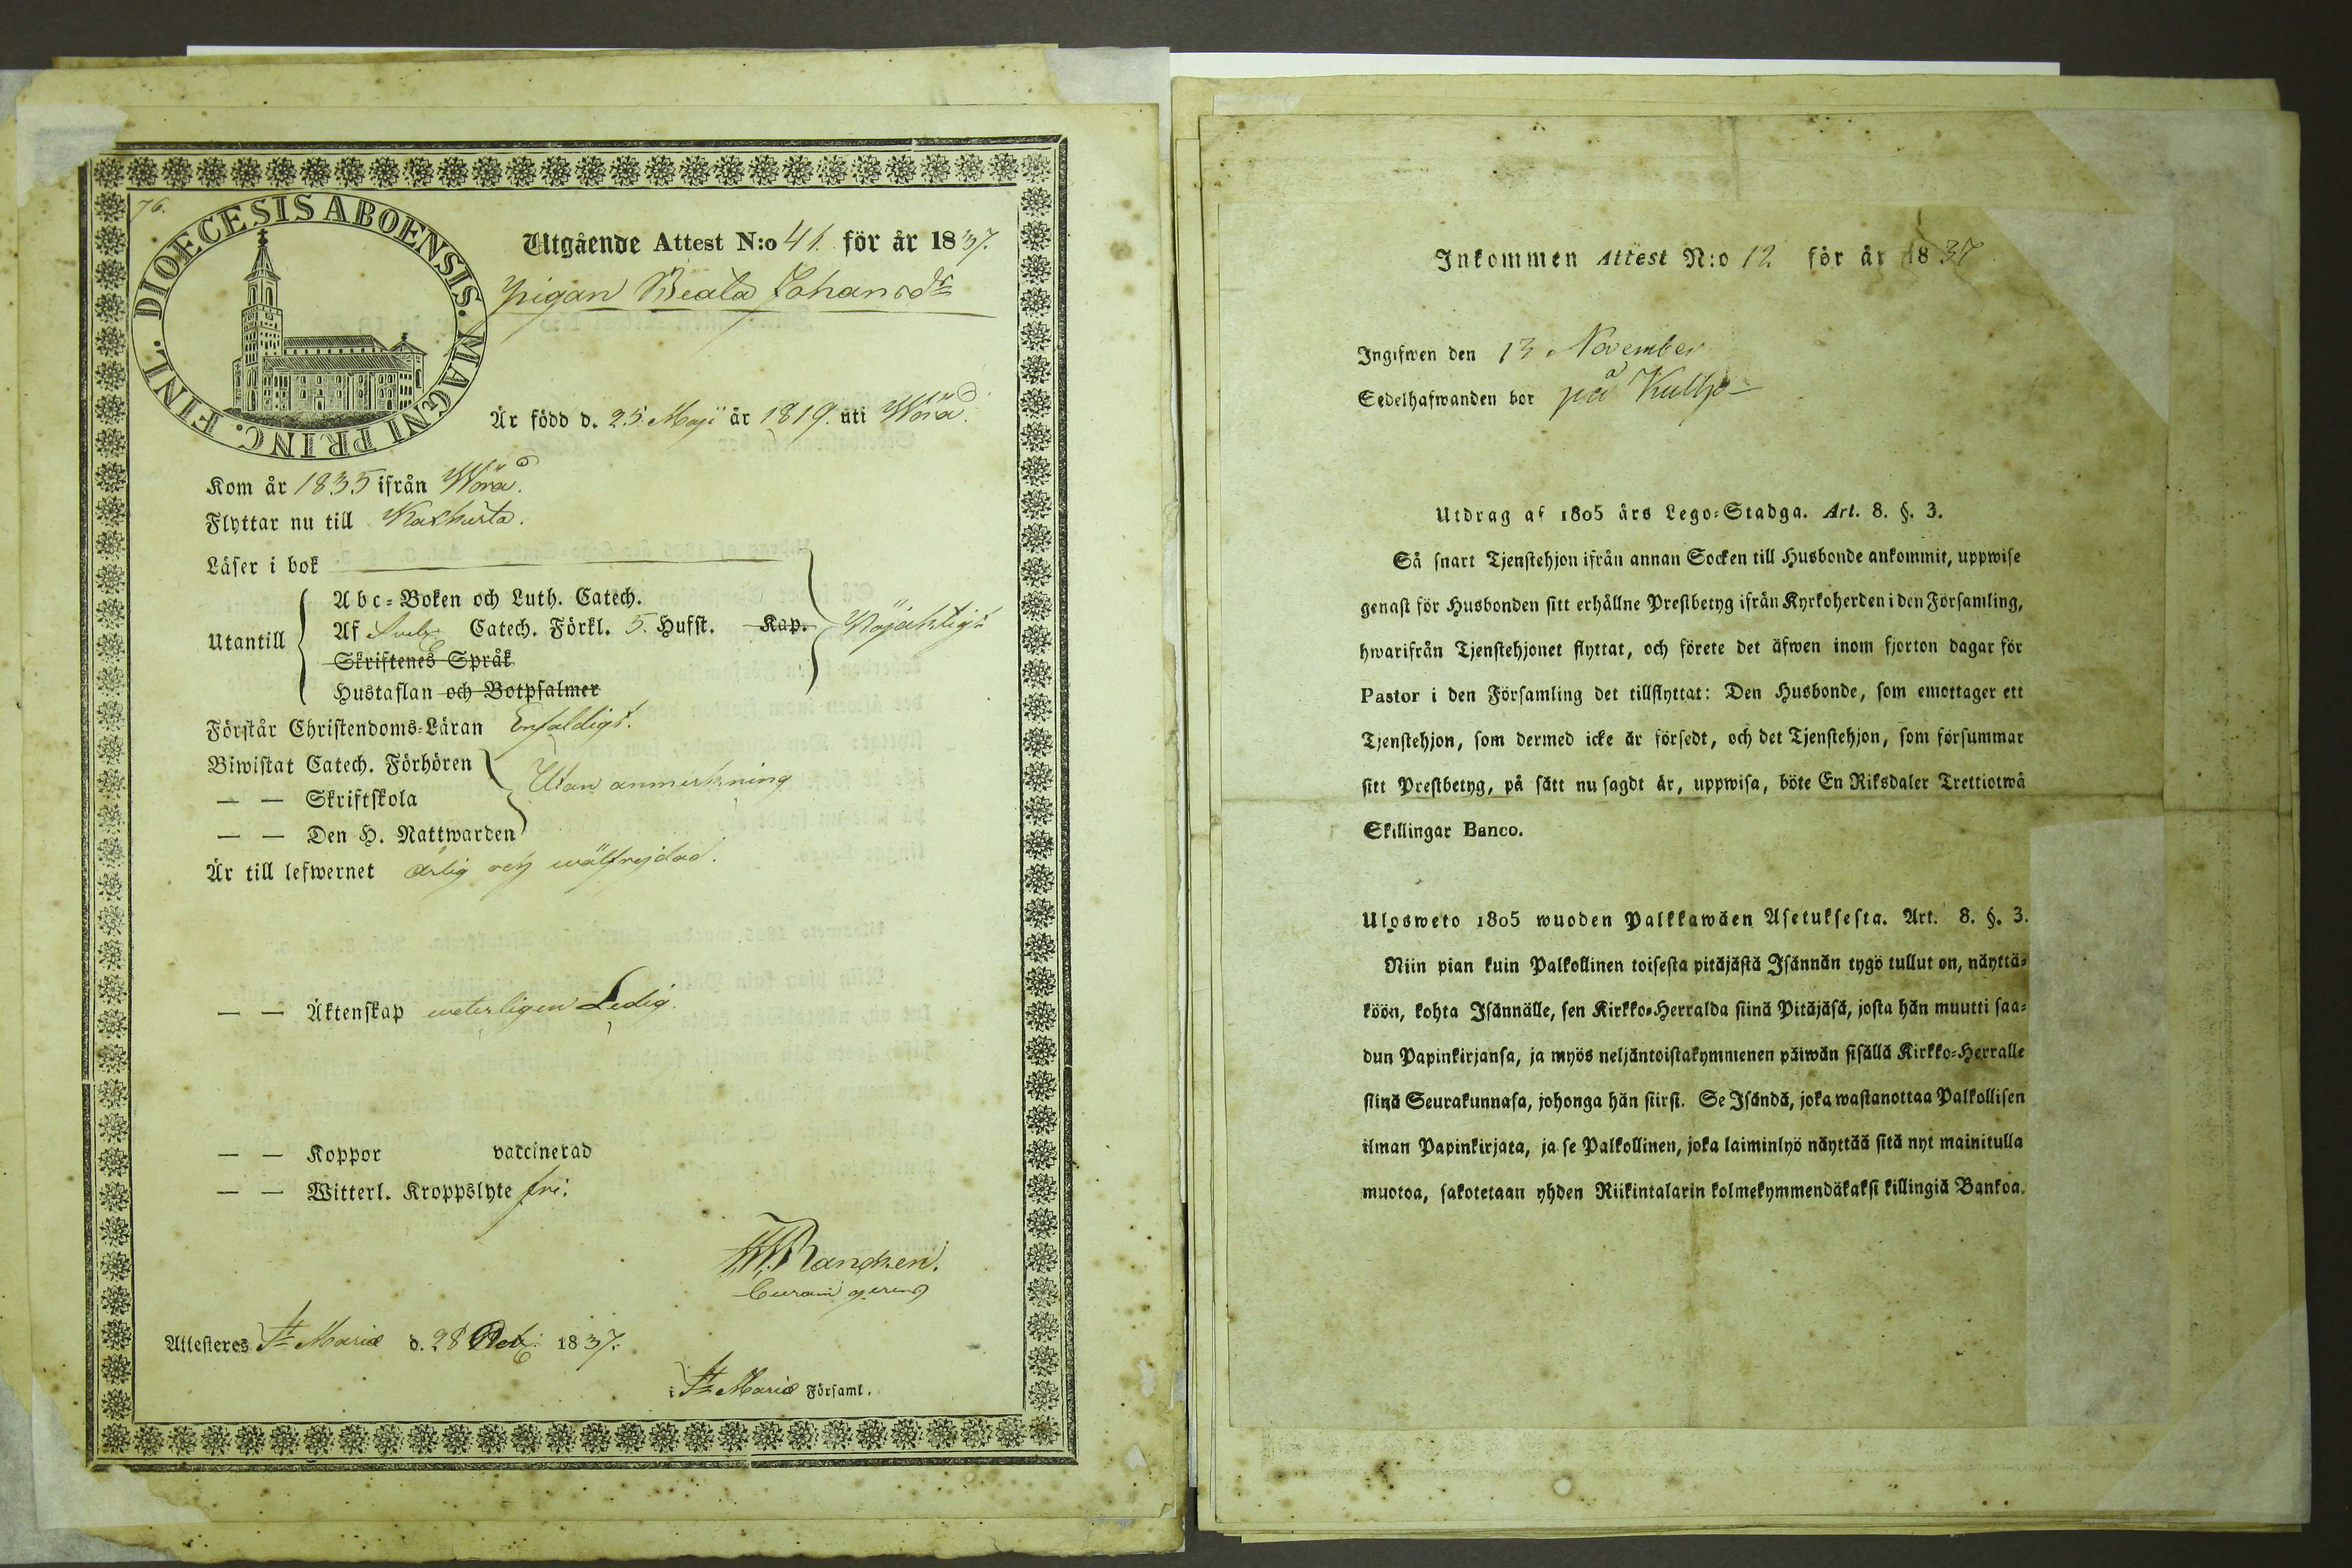 76.
DIOECESIS ABOENSIS. MAGNI PRINC. FINL.
Utgående Attest N:o 41. för år 1837.
Pigan Beata Johansdr
Är född d. 25. Maji år 1819. uti Wörå.
Kom år 1835 ifrån Wörå.
Flyttar nu till Kaxkerta.
Läser i bok
Utantill
Abc-Boken och Luth. Catech.
Af Sveb. Catech. Förkl. 5. Hufst. Kap.
Skriftenes Språk
Hustaflan och Botpsalmer
Nöjaktigt
Förstår Christendoms-Läran Enfaldigt.
Biwistat Catech. Förhören
— — Skriftskola
— — Den H. Nattwarden
Utan anmerkning
Är till lefwernet ärlig och wälfrejdad.
— — Äktenskap weterligen Ledig.
— — Koppor vaccinerad
— — Witterl. Kroppslyte fri.
Rancken.
Curam gerens
Attesteres St Mariæ d. 28 Octob. 1837.
i St Mariæ Församl.
Inkommen Attest N:o 12 för år 1837
Ingifwen den 13 November
Sedelhafwanden bor på Kulho
Utdrag af 1805 års Lego-Stadga. Art. 8. §. 3.
Så snart Tjenstehjon ifrån annan Socken till Husbonde ankommit, uppwise
genast för Husbonden sitt erhållne Prestbetyg ifrån Kyrkoherden i den Församling,
hwarifrån Tjenstehjonet flyttat, och förete det äfwen inom fjorton dagar för
Pastor i den Församling det tillflyttat: Den Husbonde, som emottager ett
Tjenstehjon, som dermed icke är försedt, och det Tjenstehjon, som försummar
sitt Prestbetyg, på sätt nu sagdt är, uppwisa, böte En Riksdaler Trettiotwå
Skillingar Banco.
Ulosweto 1805 wuoden Palkkawäen Asetuksesta. Art. 8. §. 3.
Niin pian kuin Palkollinen toisesta pitäjästä Isännän tygö tullut on, näyttä-
köön, kohta Isännälle, sen Kirkko-Herralda siinä Pitäjäsä, josta hän muutti saa-
dun Papinkirjansa, ja myös neljäntoistakymmenen päiwän sisällä Kirkko-Herralle
siinä Seurakunnasa, johonga hän siirsi. Se Isändä, joka wastanottaa Palkollisen
ilman Papinkirjata, ja se Palkollinen, joka laiminlyö näyttää sitä nyt mainitulla
muotoa, sakotetaan yhden Riikintalarin kolmekymmendäkaksi killingiä Bankoa.